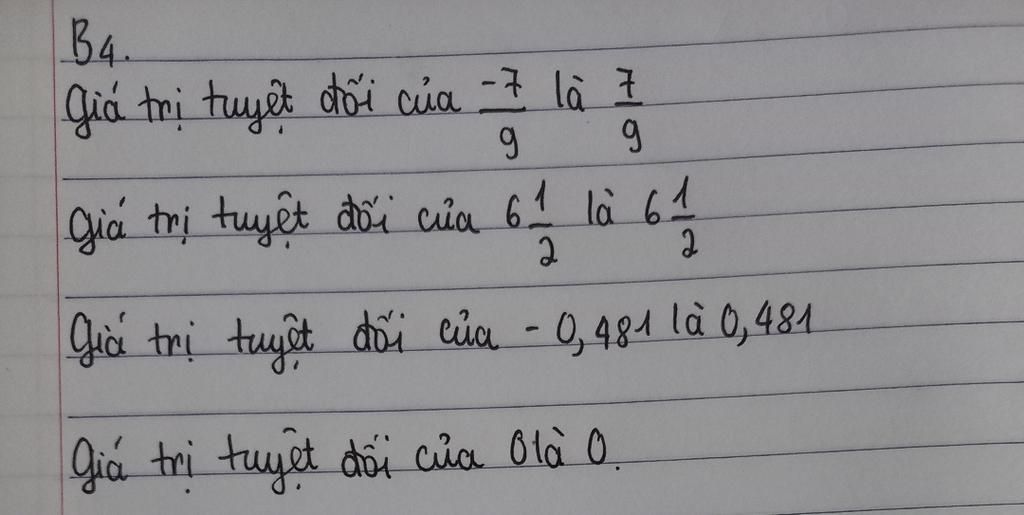 B4.
Giá trị tuyệt đối của -7/9 là 7/9
Giá trị tuyệt đối của 6 1/2 là 6 1/2
Giá trị tuyệt đối của - 0,481 là 0,481
Giá trị tuyệt đối của 0 là 0.